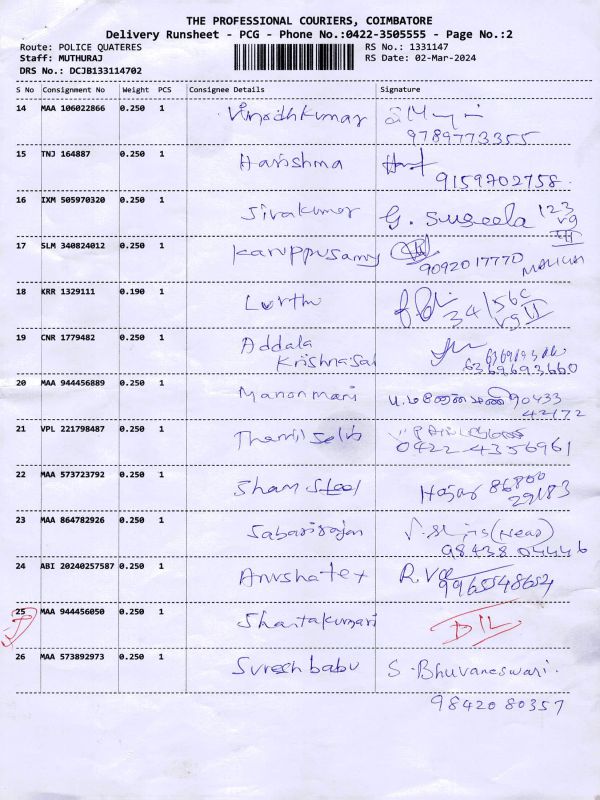 THE PROFESSIONAL COURIERS, COIMBATORE
Delivery Runsheet - PCG - Phone No.:0422-3505555 - Page No.:2
Route: POLICE QUATERES
RS No.: 1331147
Staff: MUTHURAJ
RS Date: 02-Mar-2024
DRS No.: DCJB133114702
S No Consignment No Weight PCS Consignee Details Signature
14 MAA 106022866 0.250 1 Vinodhkumar
9789773355
15 TNJ 164887 0.250 1 Harishma
9159702758
16 IXM 505970320 0.250 1 Sivakumar G. Suseela 123
17 SLM 340824012 0.250 1 Karuppusamy
9092017770
18 KRR 1329111 0.190 1 34/56C
19 CNR 1779482 0.250 1 Addala
Krishnasai 6369693660
20 MAA 944456889 0.250 1 Manonmari 90433
42172
21 VPL 221798487 0.250 1 Thamil selvi
0422 4356961
22 MAA 573723792 0.250 1 Sham Steel Hajar 86800
29183
23 MAA 864782926 0.250 1 Sabarirajan
98438 04446
24 ABI 20240257587 0.250 1 Anushatex
9965548654
25 MAA 944456050 0.250 1 Shantakumari
26 MAA 573892973 0.250 1 Suresh babu S. Bhuvaneswari.
9842080357